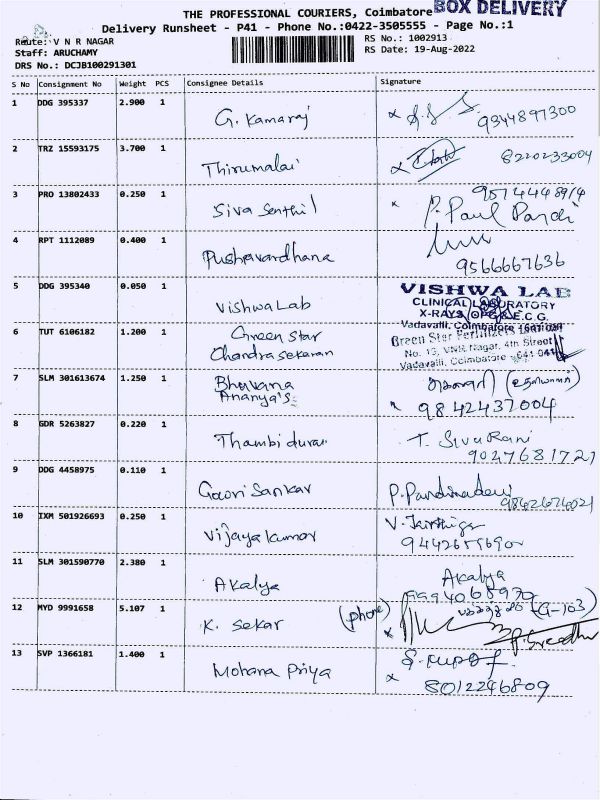 THE PROFESSIONAL COURIERS, Coimbatore BOX DELIVERY
Delivery Runsheet - P41 - Phone No.:0422-3505555 - Page No.:1
Route: V N R NAGAR
RS No.: 1002913
Staff: ARUCHAMY
RS Date: 19-Aug-2022
DRS No.: DCJB100291301
S No Consignment No Weight PCS Consignee Details Signature
1 DDG 395337 2.900 1
G. Kamaraj
9344897300
2 TRZ 15593175 3.700 1
Thirumalai
8220233004
3 PRO 13802433 0.250 1
Siva Senthil
P. Paul Pandi
4 RPT 1112089 0.400 1
Pushavardhana
9566667636
5 DDG 395340 0.050 1
Vishwa Lab
VISHWA LAB
CLINICAL LABORATORY
X-RAYS E.C.G.
Vadavalli, Coimbatore
6 TUT 6106182 1.200 1
Green Star
Chandrasekaran
Green Star Fertilizers
No. 13, VNR Nagar, 4th Street
Vadavalli, Coimbatore 641 041
7 SLM 301613674 1.250 1
Bhavana
Ananya's
9842437004
8 GDR 5263827 0.220 1
Thambidurai
T. SivaRani
9027681721
9 DDG 4458975 0.110 1
Gowri Sankar
10 IXM 501926693 0.250 1
Vijayakumar
11 SLM 301590770 2.380 1
Akalya
Akalya
9994068970
12 MYD 9991658 5.107 1
K. Sekar (phone)
(G-103)
13 SVP 1366181 1.400 1
Mohana Priya
8012246809